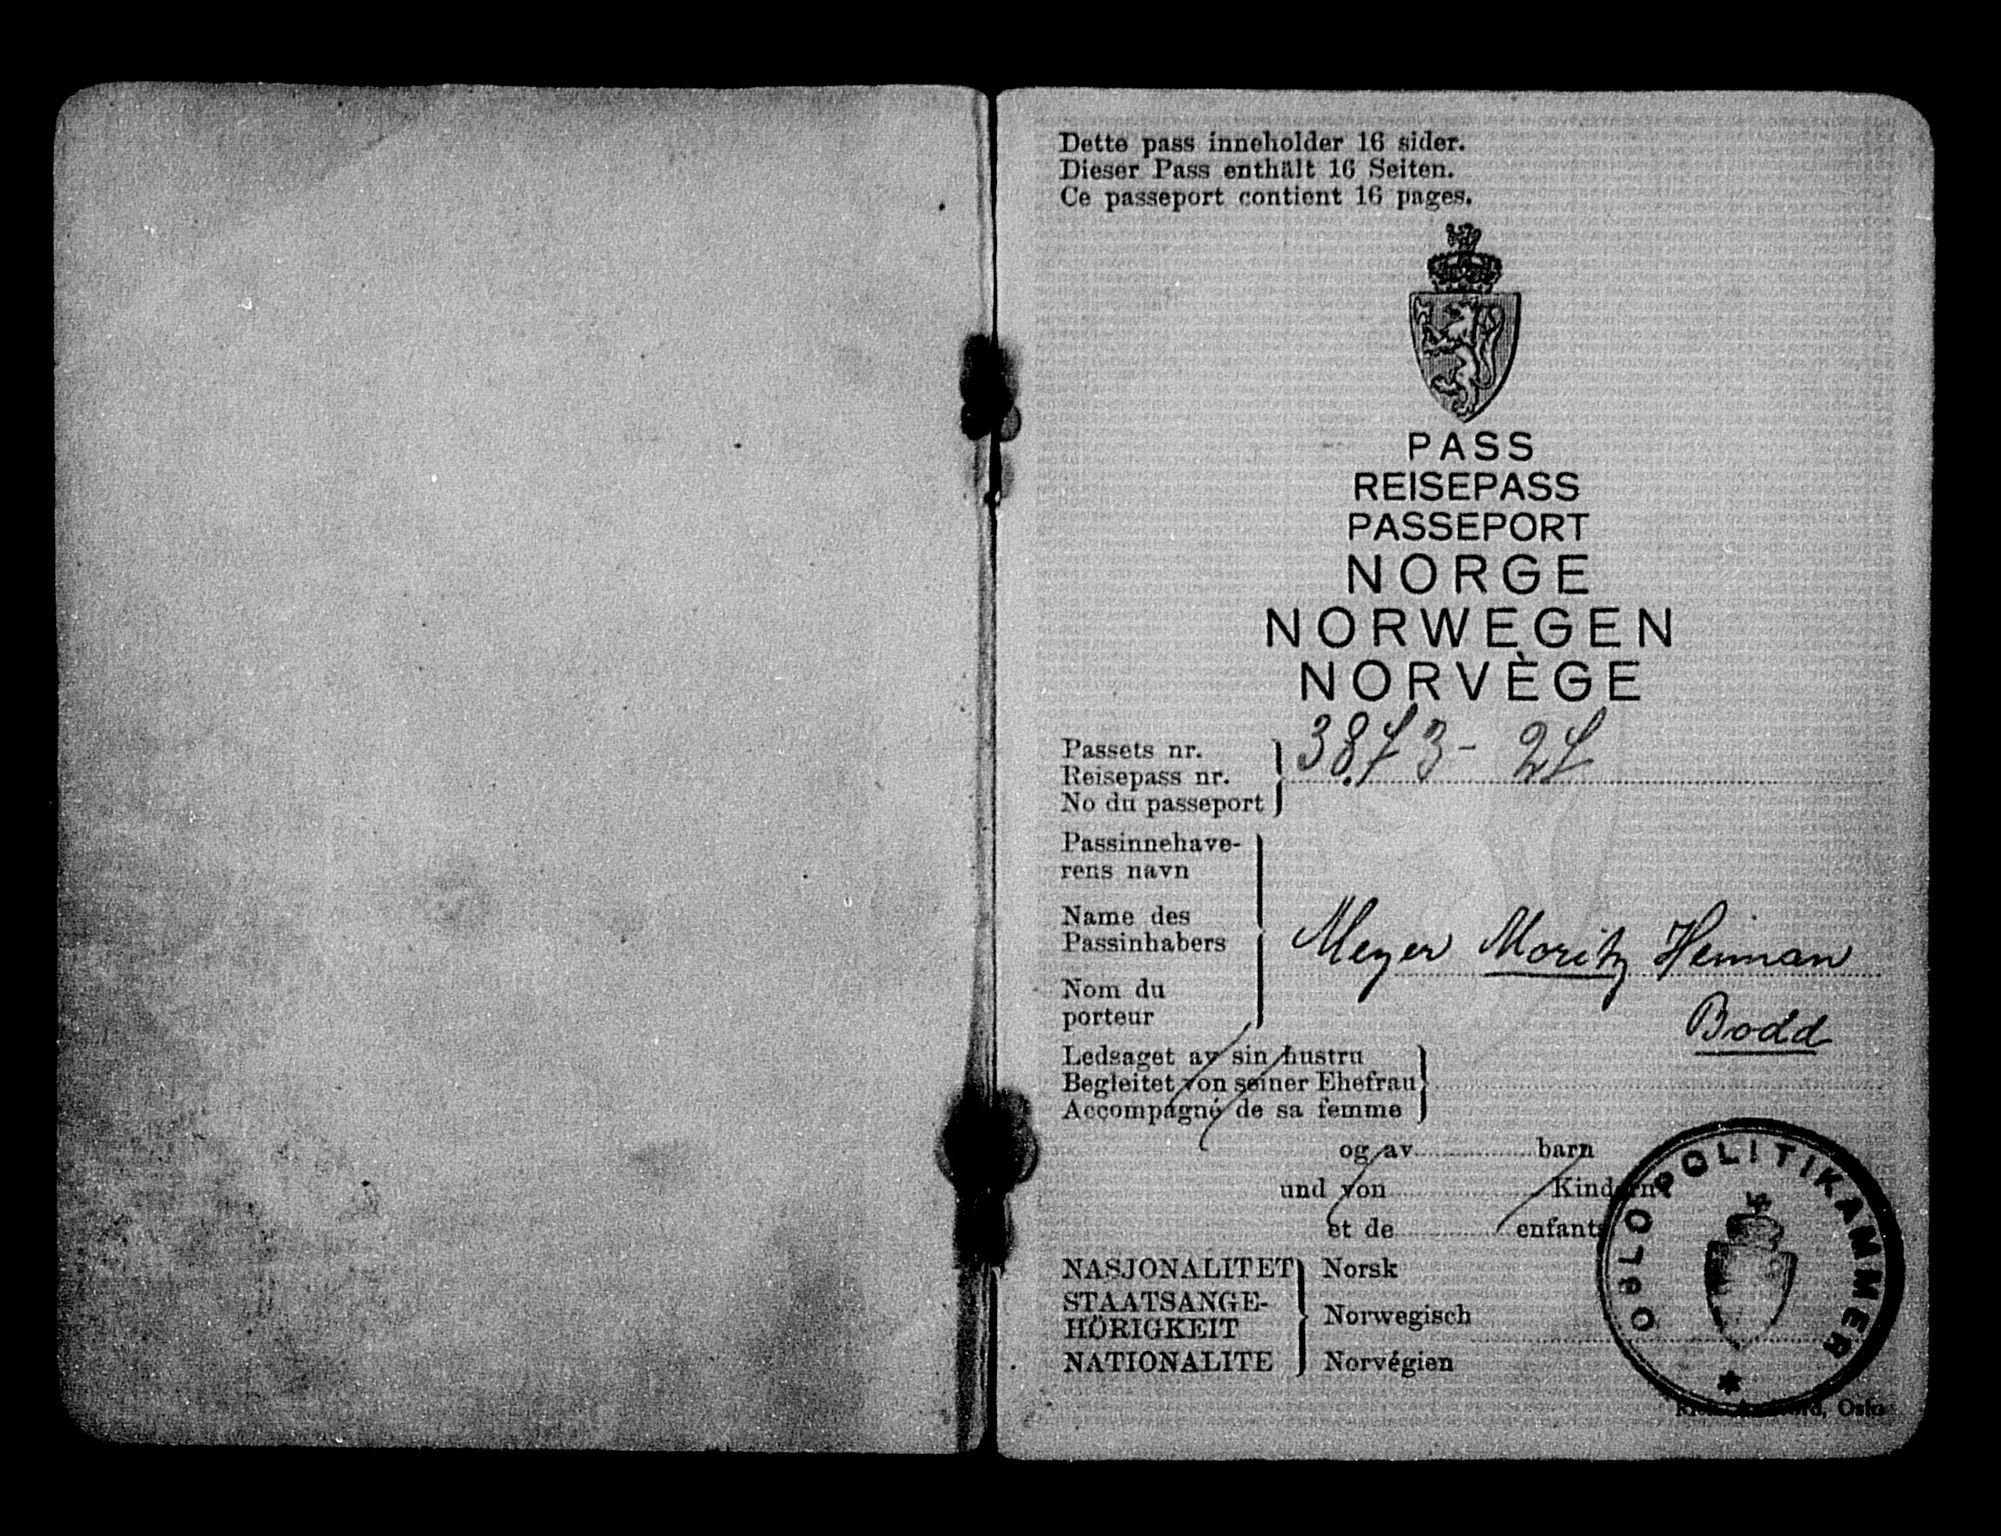 Dette pass inneholder 16 sider.
Dieser Pass enthält 16 Seiten.
Ce passeport contient 16 pages.
PASS
REISEPASS
PASSEPORT
NORGE
NORWEGEN
NORVÈGE
Passets nr.
Reisepass nr.
No du passeport
Passinnehave-
rens navn
Name des
Passinhabers
Meyer Moritz Heiman
Nom du
porteur
Bodd
Ledsaget av sin hustru
Begleitet von seiner Ehefrau
Accompagné de sa femme
og av barn
und von Kindern
et de enfants
NASJONALITET Norsk
STAATSANGE-
HÖRIGKEIT Norwegisch
NATIONALITE Norvégien
OSLO POLITIKAMMER
Oslo